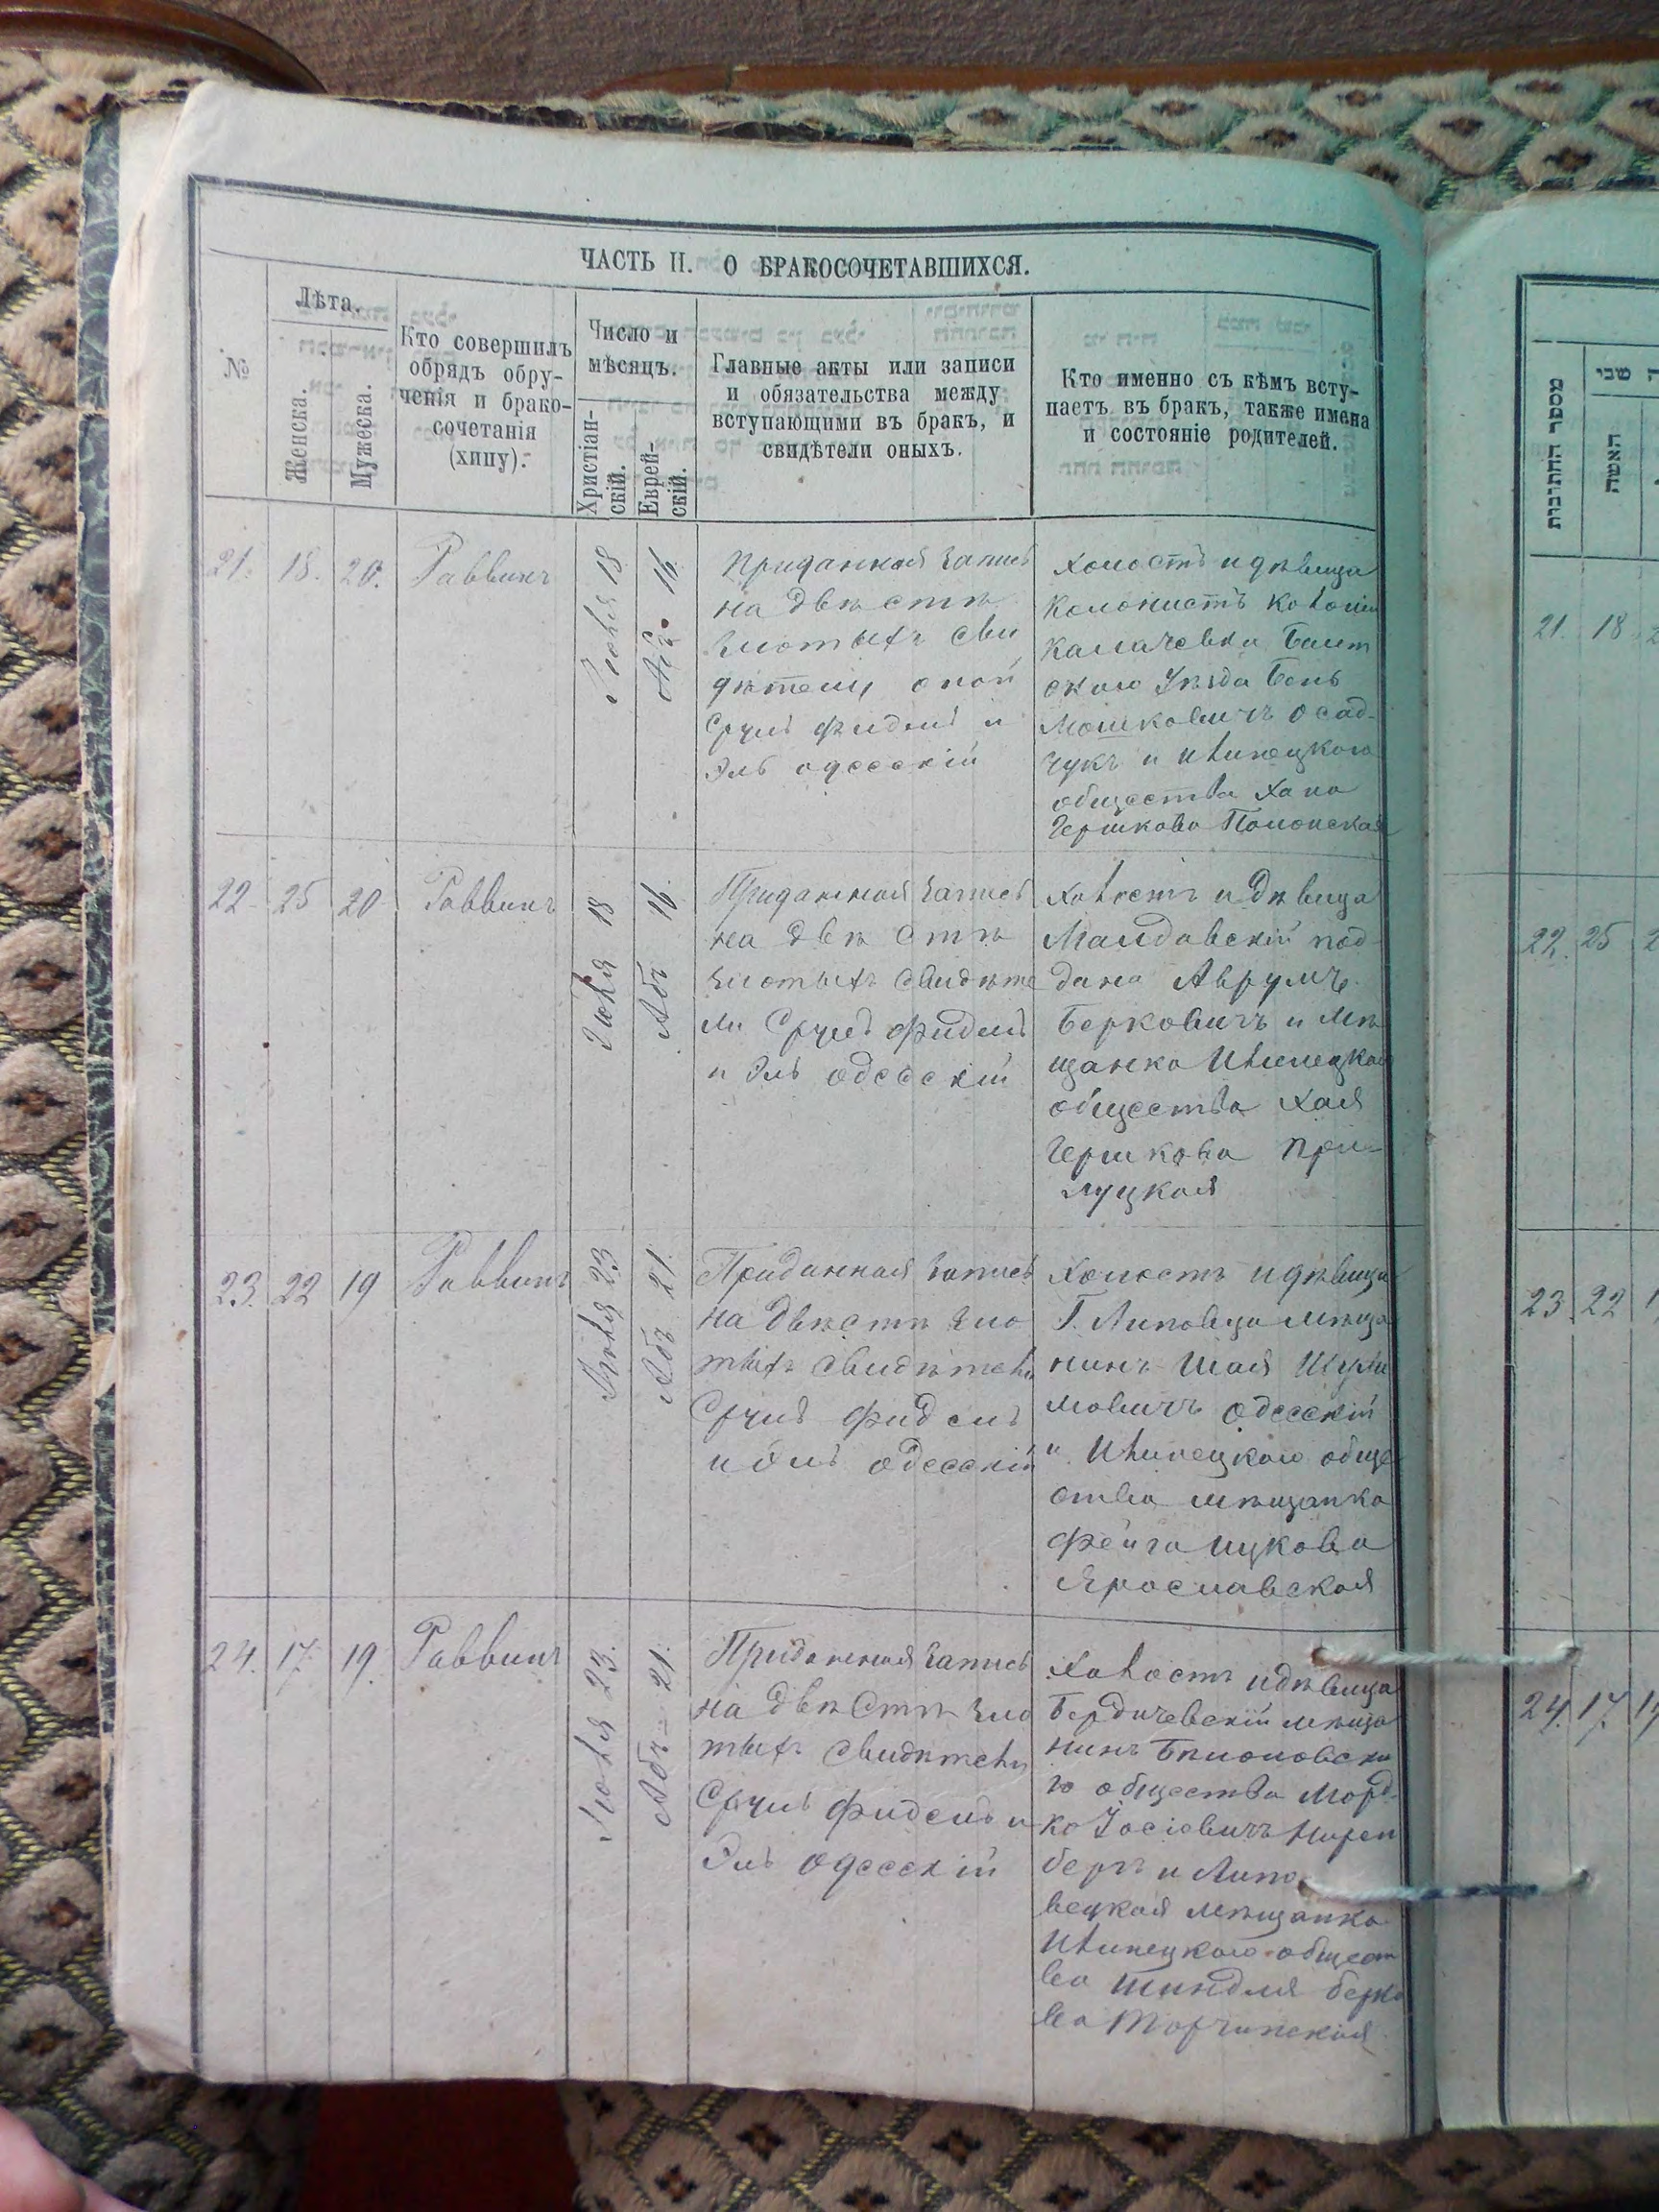 ЧАСТЬ II. О БРАКОСОЧЕТАВШИХСЯ.
№
Лѣта.
Женска.
Мужеска.
Кто совершилъ
обрядъ обру-
ченія и брако-
сочетанія
(хипу).
Число и
мѣсяцъ.
Христіан-
скій.
Еврей-
скій.
Главные акты или записи
и обязательства между
вступающими въ бракъ, и
свидѣтели оныхъ.
Кто именно съ кѣмъ всту-
паетъ въ бракъ, также имена
и состояніе родителей.
21. 18. 20. Раввинъ
Іюля 18
Абъ 16
Приданная запись
на двѣ стѣ
злотыхъ сви
дѣтели оной
Сруль Фидель и
Эль Одесскій
Холостъ и дѣвица
Колонистъ колоніи
Балт
скаго Уѣзда Бень
Мошковичъ Осад-
чукъ и Илинецкого
общества Хана
Гершкова Полонская
22 25 20 Раввинъ
Іюля 18
Абъ 16
Приданная запись
на двѣ стѣ
злотыхъ свидѣте
ли Сруль Фидель
и Эль Одесскій
Холостъ и дѣвица
Малдавскій под
дана Аврумъ
Берковичъ и мѣ
щанка Илинецкаго
общества Хая
Гершкова При-
луцкая
23. 22 19 Раввинъ
Іюля 23
Абъ 21
Приданная запись
на двѣ стѣ зло
тыхъ свидѣтели
Сруль Фидель
и Эль Одесскій
Холостъ и дѣвица
Г. Липовца мѣща
нинъ Шая
мовичъ Одесскій
и Илинецкаго обще
ства мѣщанка
Фейга Ицкова
Ярославская
24. 17. 19. Раввинъ
Іюля 23.
Абъ 21.
Приданная запись
на двѣ стѣ зло
тыхъ свидѣтели
Сруль Фидель и
Эль Одесскій
Холостъ и дѣвица
Бердичевскій мѣща
нинъ
го обществаМорд-
ко Іосіовичъ Нирен
бергъ и Липо
вецкая мѣщанка
Илинецкаго общест
ва Шиндля Берко
ва Торчинская
מספר החתונות
האשה
שני
21. 18.
22. 25
23. 22
24. 17.